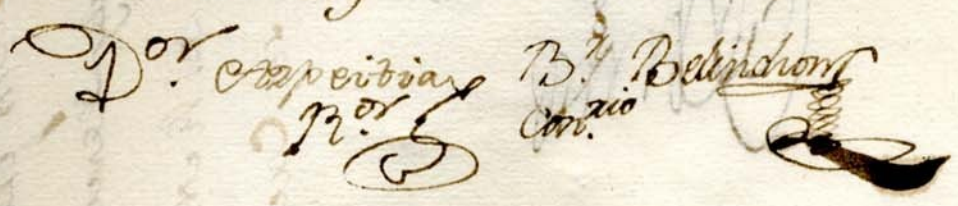 D.or Azpeitia B.r Belinchon
R.or Con.rio